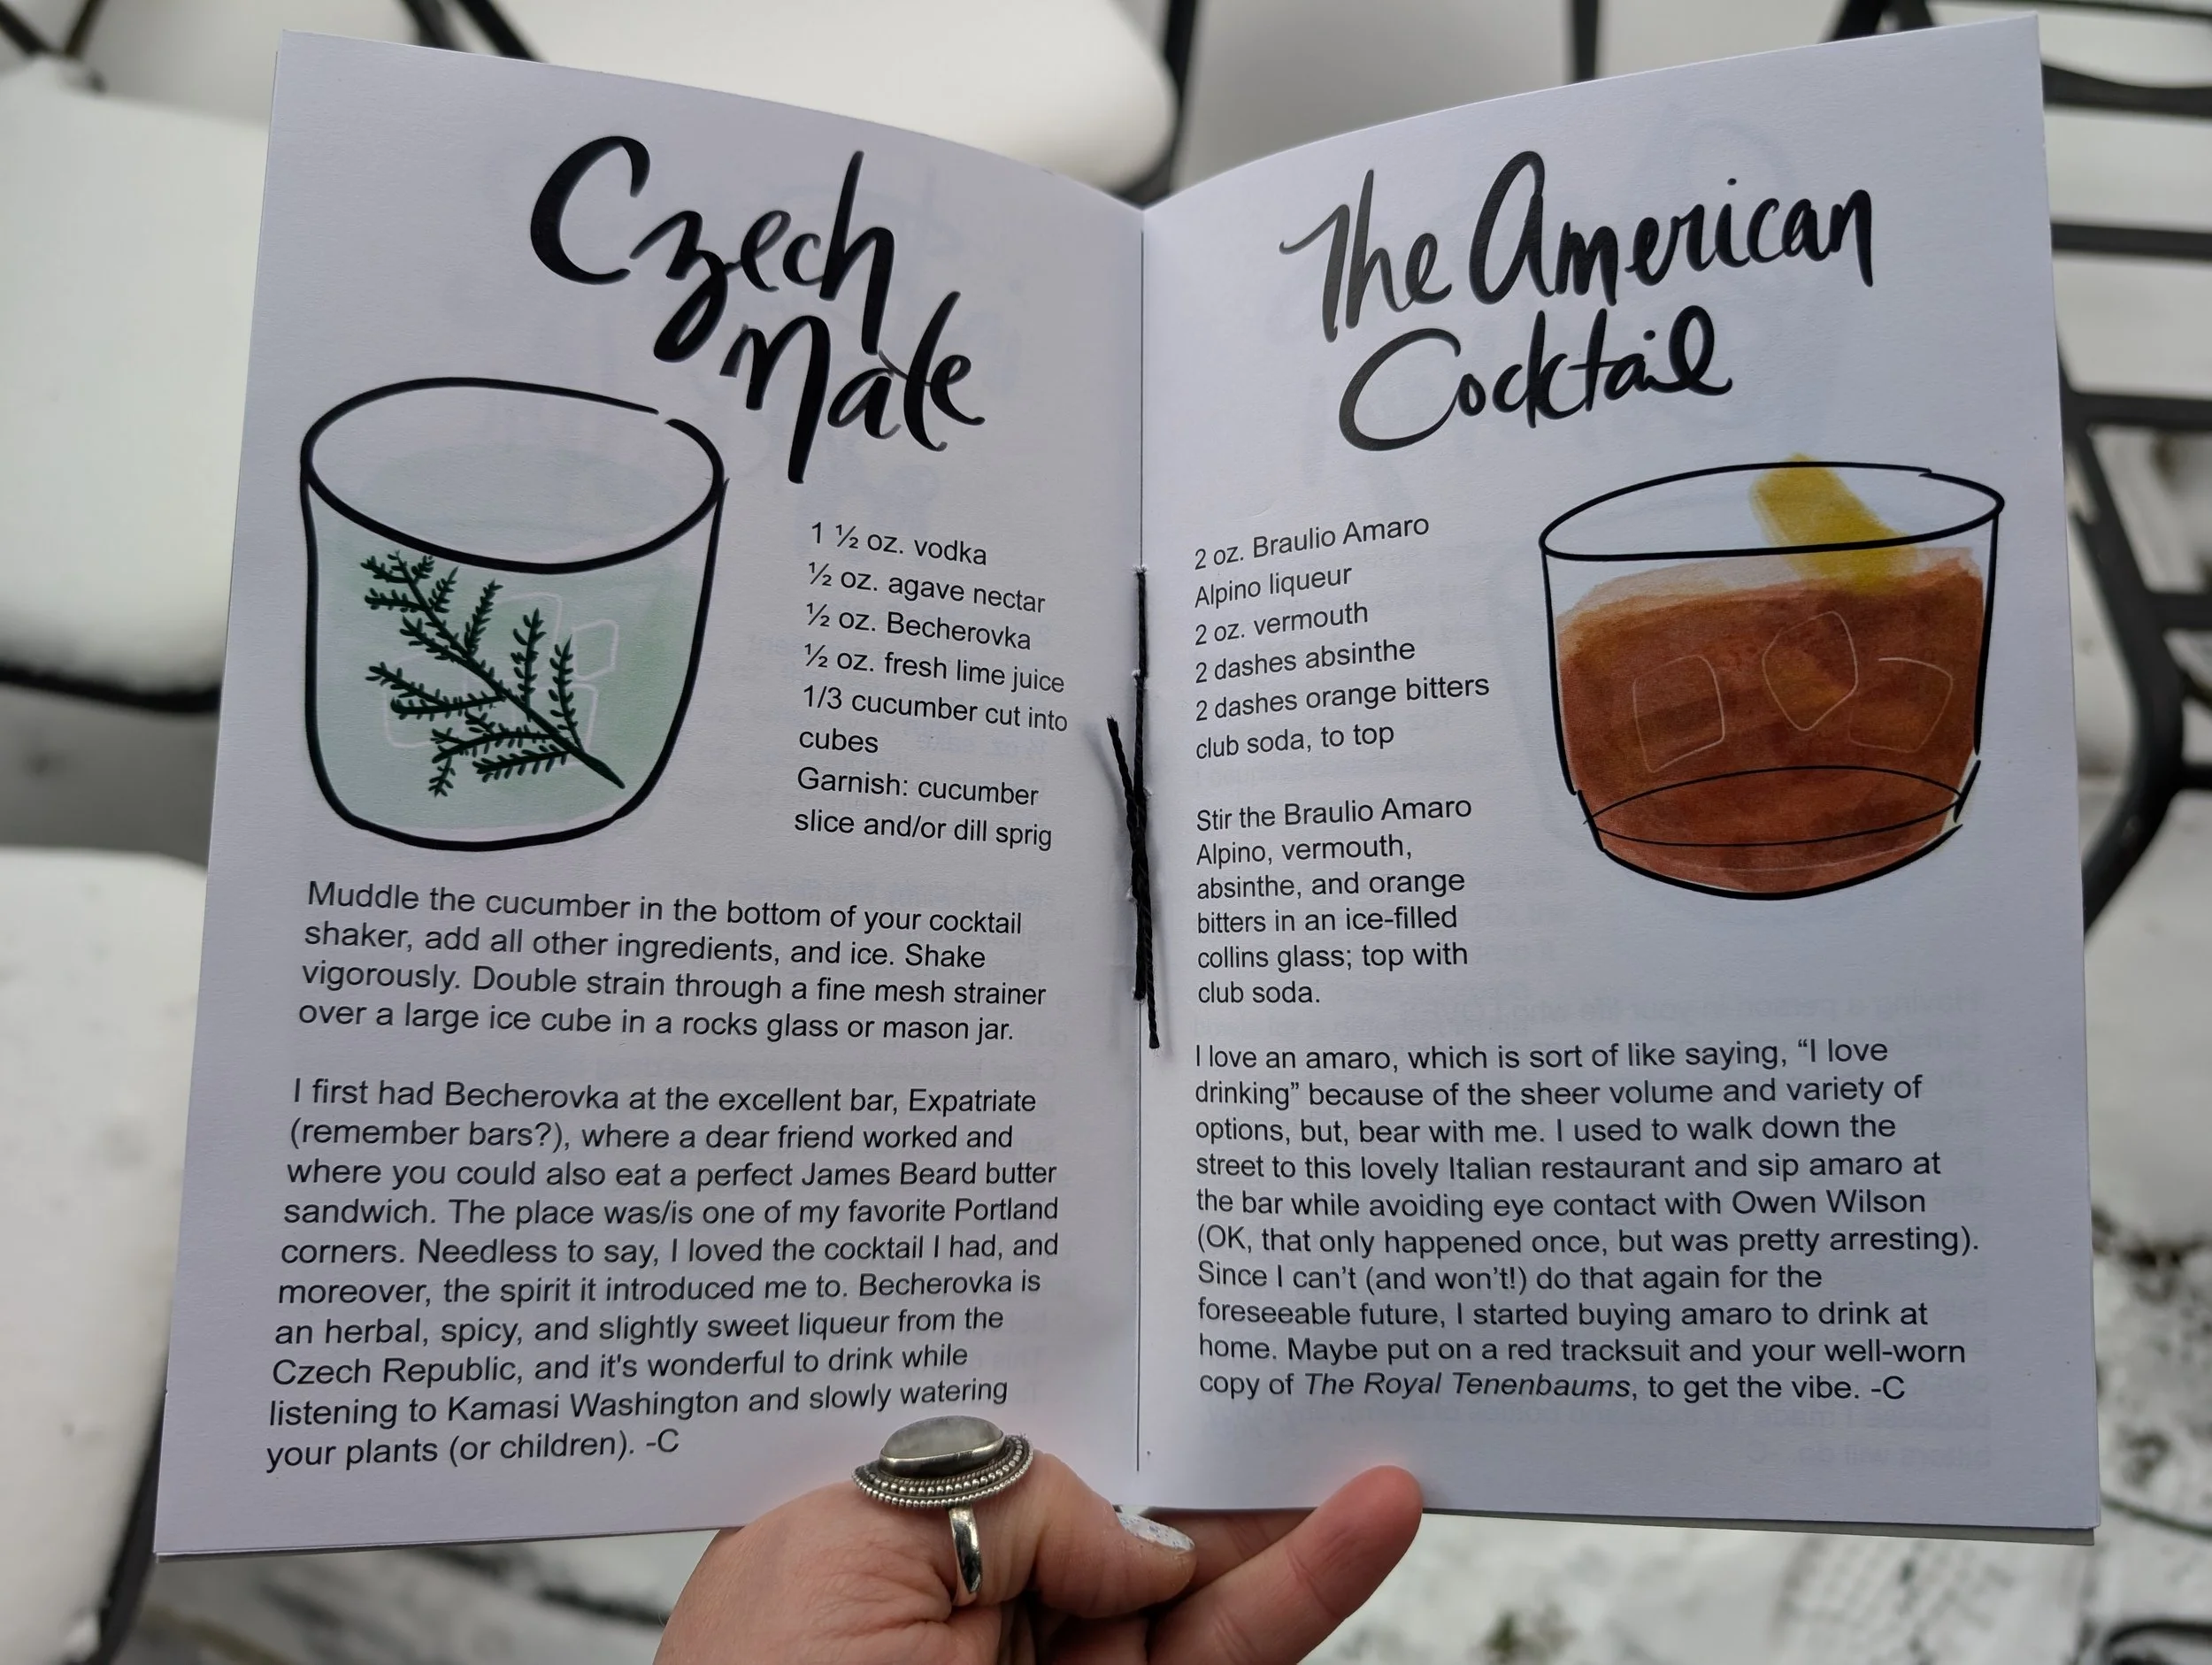 Czech
Mate
1 ½ oz. vodka
½ oz. agave nectar
½ oz. Becherovka
½ oz. fresh lime juice
1/3 cucumber cut into
cubes
Garnish: cucumber
slice and/or dill sprig
Muddle the cucumber in the bottom of your cocktail
shaker, add all other ingredients, and ice. Shake
vigorously. Double strain through a fine mesh strainer
over a large ice cube in a rocks glass or mason jar.
I first had Becherovka at the excellent bar, Expatriate
(remember bars?), where a dear friend worked and
where you could also eat a perfect James Beard butter
sandwich. The place was/is one of my favorite Portland
corners. Needless to say, I loved the cocktail I had, and
moreover, the spirit it introduced me to. Becherovka is
an herbal, spicy, and slightly sweet liqueur from the
Czech Republic, and it's wonderful to drink while
listening to Kamasi Washington and slowly watering
your plants (or children). -C
The American
Cocktail
2 oz. Braulio Amaro
Alpino liqueur
2 oz. vermouth
2 dashes absinthe
2 dashes orange bitters
club soda, to top
Stir the Braulio Amaro
Alpino, vermouth,
absinthe, and orange
bitters in an ice-filled
collins glass; top with
club soda.
I love an amaro, which is sort of like saying, “I love
drinking” because of the sheer volume and variety of
options, but, bear with me. I used to walk down the
street to this lovely Italian restaurant and sip amaro at
the bar while avoiding eye contact with Owen Wilson
(OK, that only happened once, but was pretty arresting).
Since I can’t (and won’t!) do that again for the
foreseeable future, I started buying amaro to drink at
home. Maybe put on a red tracksuit and your well-worn
copy of The Royal Tenenbaums, to get the vibe. -C